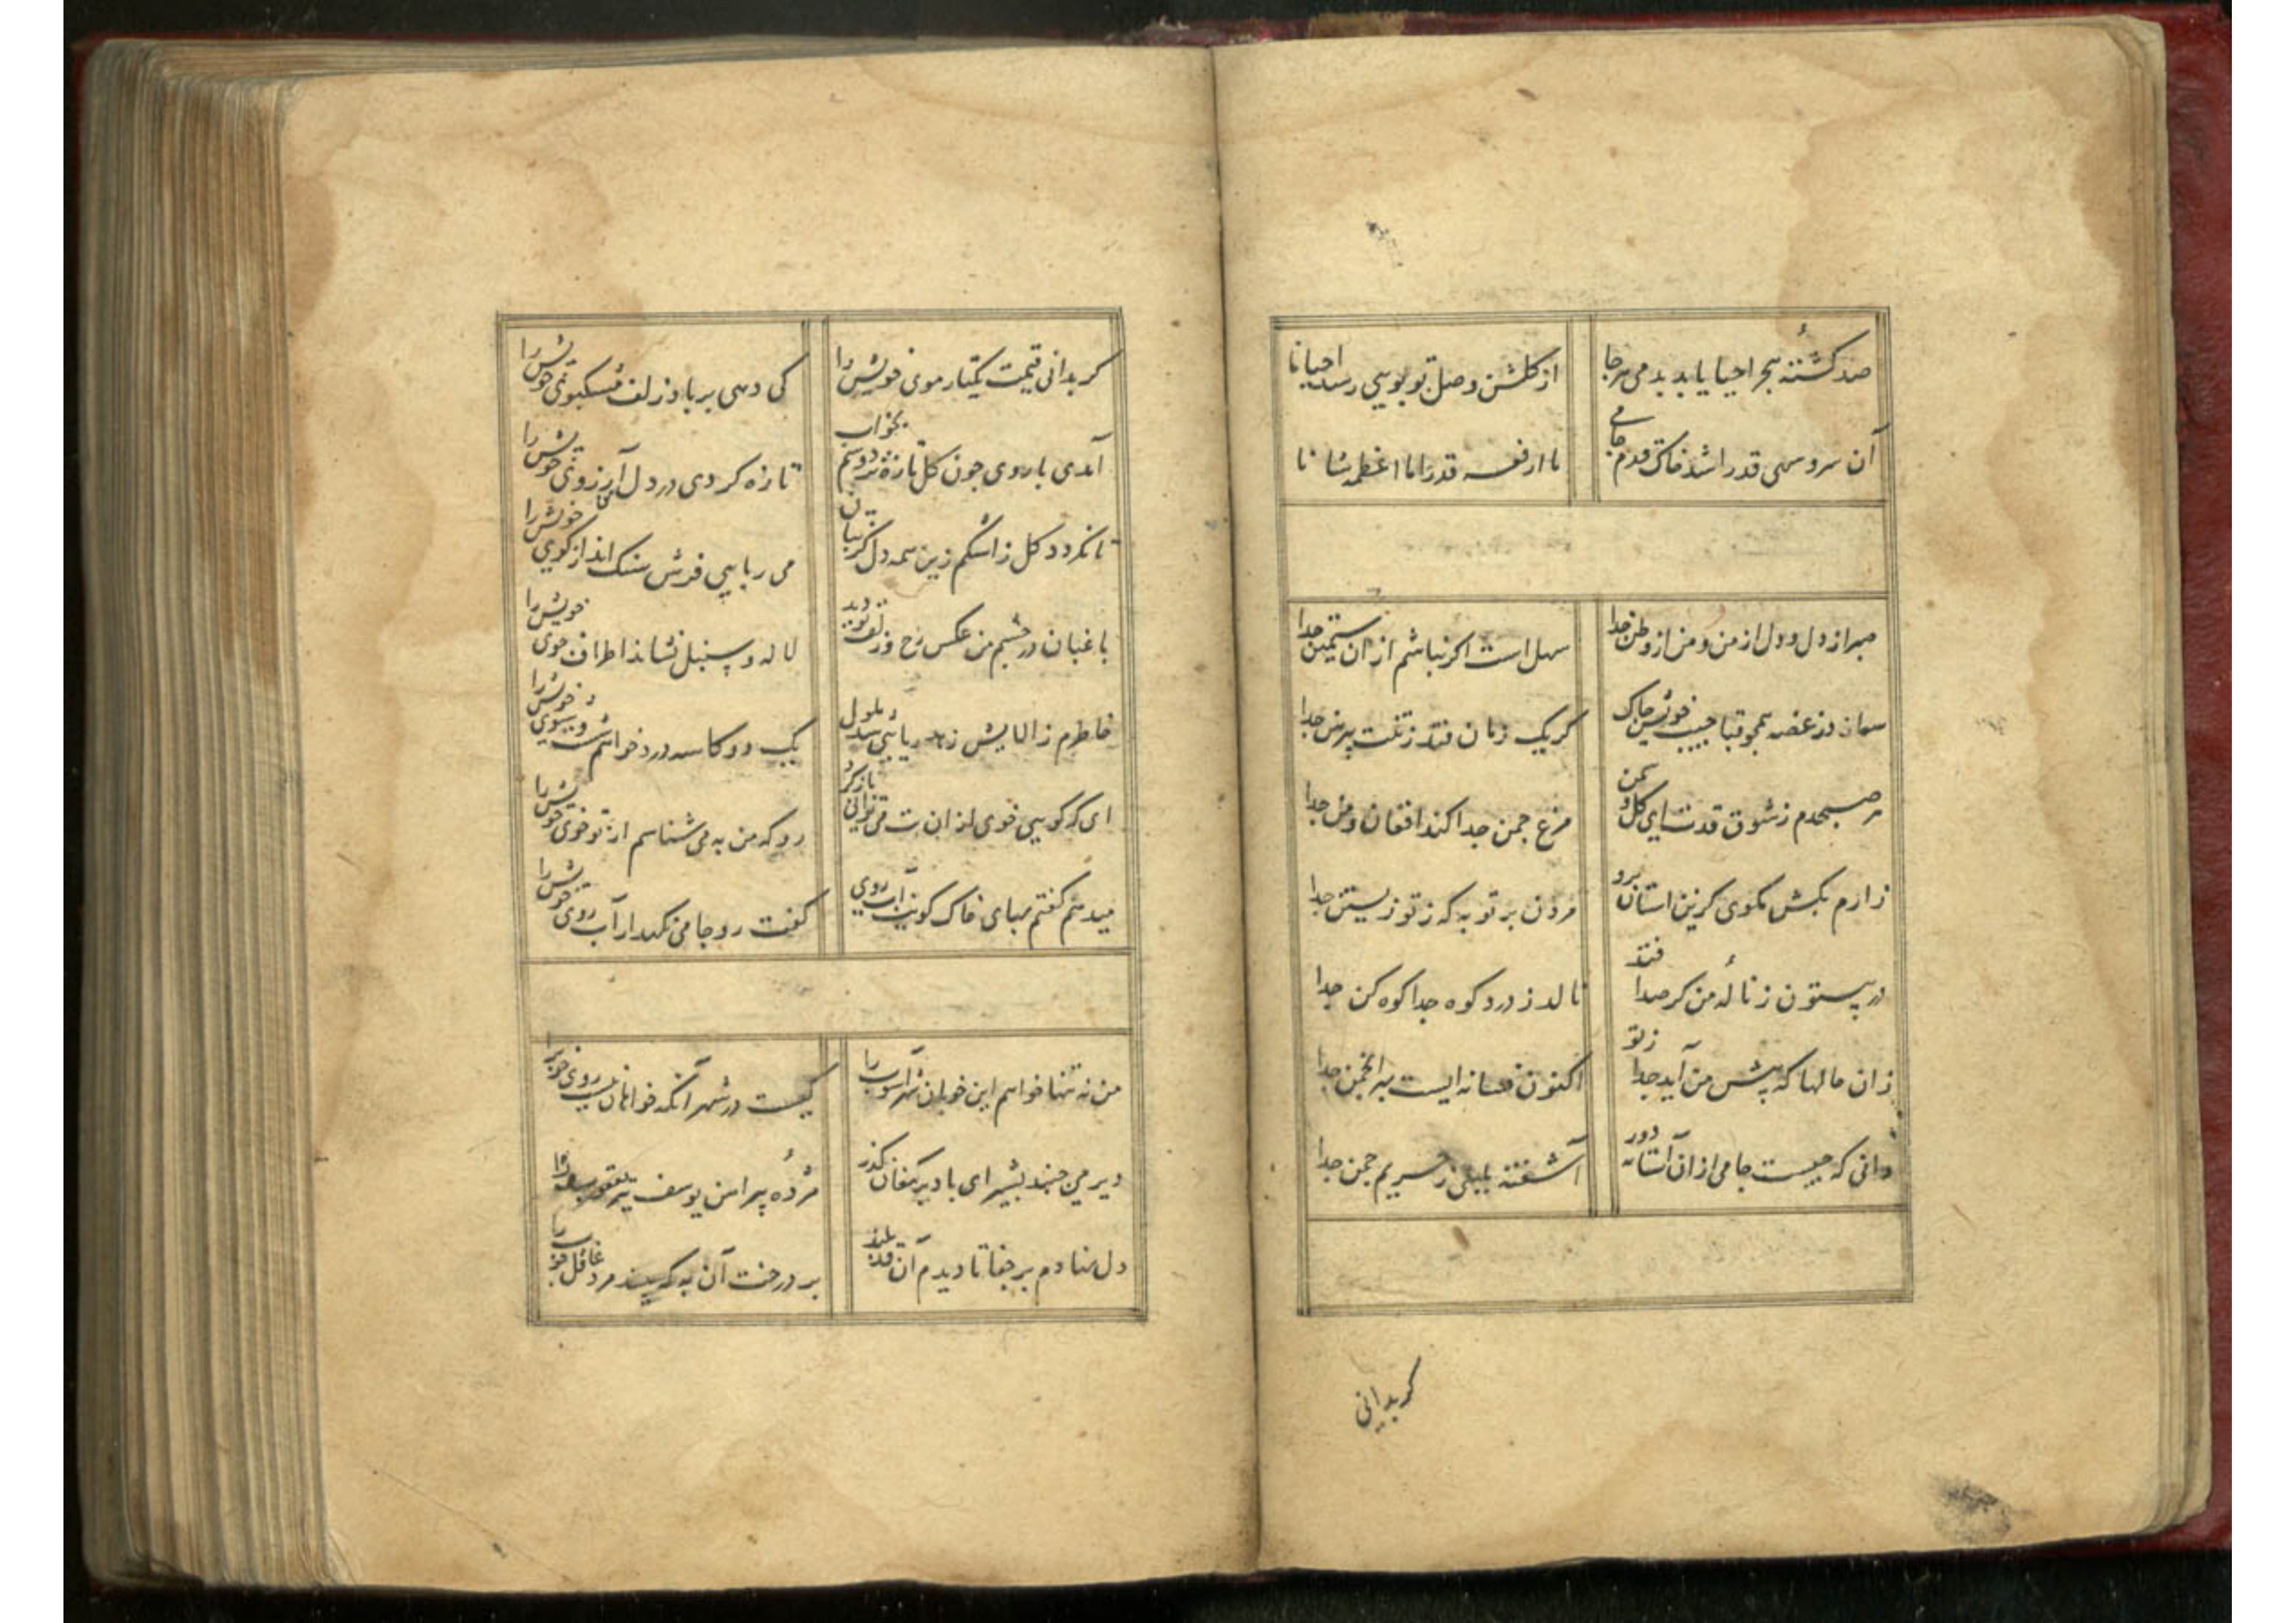 صد کشتهٔ هجر احیا یابد بدمی هر جا
از کلشن وصل تو بویی رسد احیانا
آن سرو سهی قد را شد خاک قدم جامی
ما ارفعه قدرا ما اعظمه شانا
صبر از دل و دل از من و من از وطن جدا
سهل است اکر نباشم از آن سیمتن جدا
خویش چاک
کر یک زمان فتد ز تنت پیرهن جدا
هر صبحدم ز شوق قدت ای کل و سمن
مرغ چمن جدا کند افغان و من جدا
زارم بکش مکوی کزین استان برو
مردن بر تو به که ز تو زیستن جدا
در بیستون ز نالهٔ من کر صدا فتد
نالد ز درد کوه جدا کوه کن جدا
زان حالها که پیش من آید جدا ز تو
اکنون فسانه ایست بهر انجمن جدا
دانی که چیست جامی از ان آستانه دور
آشفته بلبلی ز حریم چمن جدا
کر بدانی
کر بدانی قیمت یکتار موی خویش را
کی دهی بر باد زلف مشکبوی خویش را
آمدی با روی چون کل تازه دوشم بخواب
تازه کردی در دل آرزوی خویش را
تا نکردد کل ز اشکم زین همه دل کز بتان
می ربایی فرش سنک انداز کوی خویش را
باغبان در چشم من عکس رخ و زلف تو دید
لاله و سنبل نشاند اطراف جوی خویش را
خاطرم ز الایش زهد ریایی شد ملول
یک دو کاسه درد خواهم شست و شوی خویش را
ای که کویی خوی از ان بت می توانی باز کرد
رو که من به می شناسم از تو خوی خویش را
میدهم کفتم بهای خاک کویت آب روی
کفت رو جامی نکهدار آب روی خویش را
من نه تنها خواهم این خوبان شهرآشوب را
کیست در شهر آنکه خواهان نیست روی خوب را
دیر می جنبد بشیر ای باد بر کنعان کذر
مژدهٔ پیراهن یوسف ببر یعقوب را
دل نهادم بر جفا تا دیدم آن قد بلند
بر درخت آن به که بیند مرد غافل چوب را